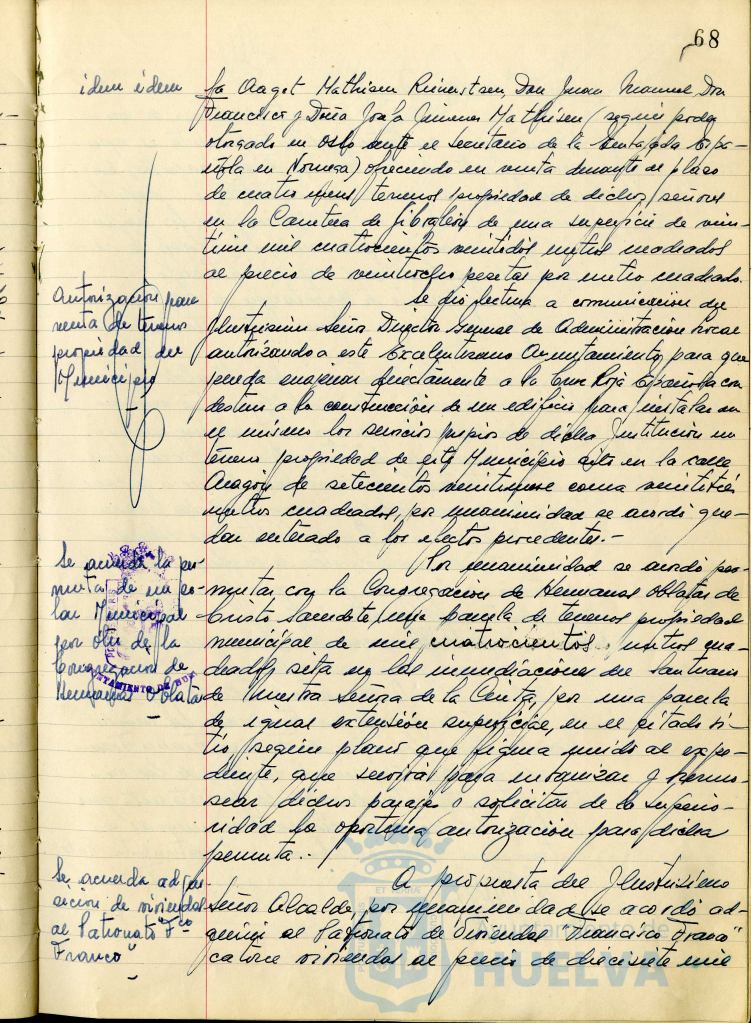 68
idem idem
fa Aaget Mathisen Reinertsen, Don Juan Manuel, Don
Francisco y Doña Josefa Jimenez Mathisen (según poder
otorgado en Oslo ante el secretario de la Embajada Espa-
ñola en Noruega) ofreciendo en venta durante el plazo
de cuatro meses terrenos propiedad de dichos señores
en la Carretera de Gibraleón de una superficie de vein-
tiun mil cuatrocientos veintidós metros cuadrados
al precio de veintiocho pesetas por metro cuadrado.
Autorización para
venta de terreno
propiedad del
Municipio
Se dio lectura a comunicación del
Ilustrisimo Señor Director General de Administración Local
autorizando a este Excelentisimo Ayuntamiento, para que
pueda enajenar directamente a la Cruz Roja Española con
destino a la construcción de un edificio para instalar en
el mismo los servicios propios de dicha Institución un
terreno propiedad de este Municipio sito en la calle
Aragón de setecientos veintinueve coma veintitrés
metros cuadrados, por unanimidad se acordó que-
dar enterado a los efectos procedentes.-
Se acuerda la per-
muta de un so-
lar Municipal
por otro de la
Congregación de
Hermanas Oblatas
AYUNTAMIENTO DE HUELVA
Por unanimidad se acordó per-
mutar con la Congregación de Hermanas Oblatas de
Cristo Sacerdote, una parcela de terrenos propiedad
municipal de mil cuatrocientos metros cua-
drados, sita en las inmediaciones del Santuario
de Nuestra Señora de la Cinta, por una parcela
de igual extensión superficial, en el citado si-
tio, según plano que figura unido al expe-
diente, que servirá para urbanizar y hermo-
sear dichos parajes o solicitar de la superio-
ridad la oportuna autorización para dicha
permuta..
Se acuerda adqui-
sición de viviendas
al Patronato "Fco
Franco"
A propuesta del Ilustrisimo
Señor Alcalde, por unanimidad se acordó ad-
quirir al Patronato de Viviendas "Francisco Franco"
catorce viviendas al precio de diecisiete mil
Ayuntamiento de
HUELVA